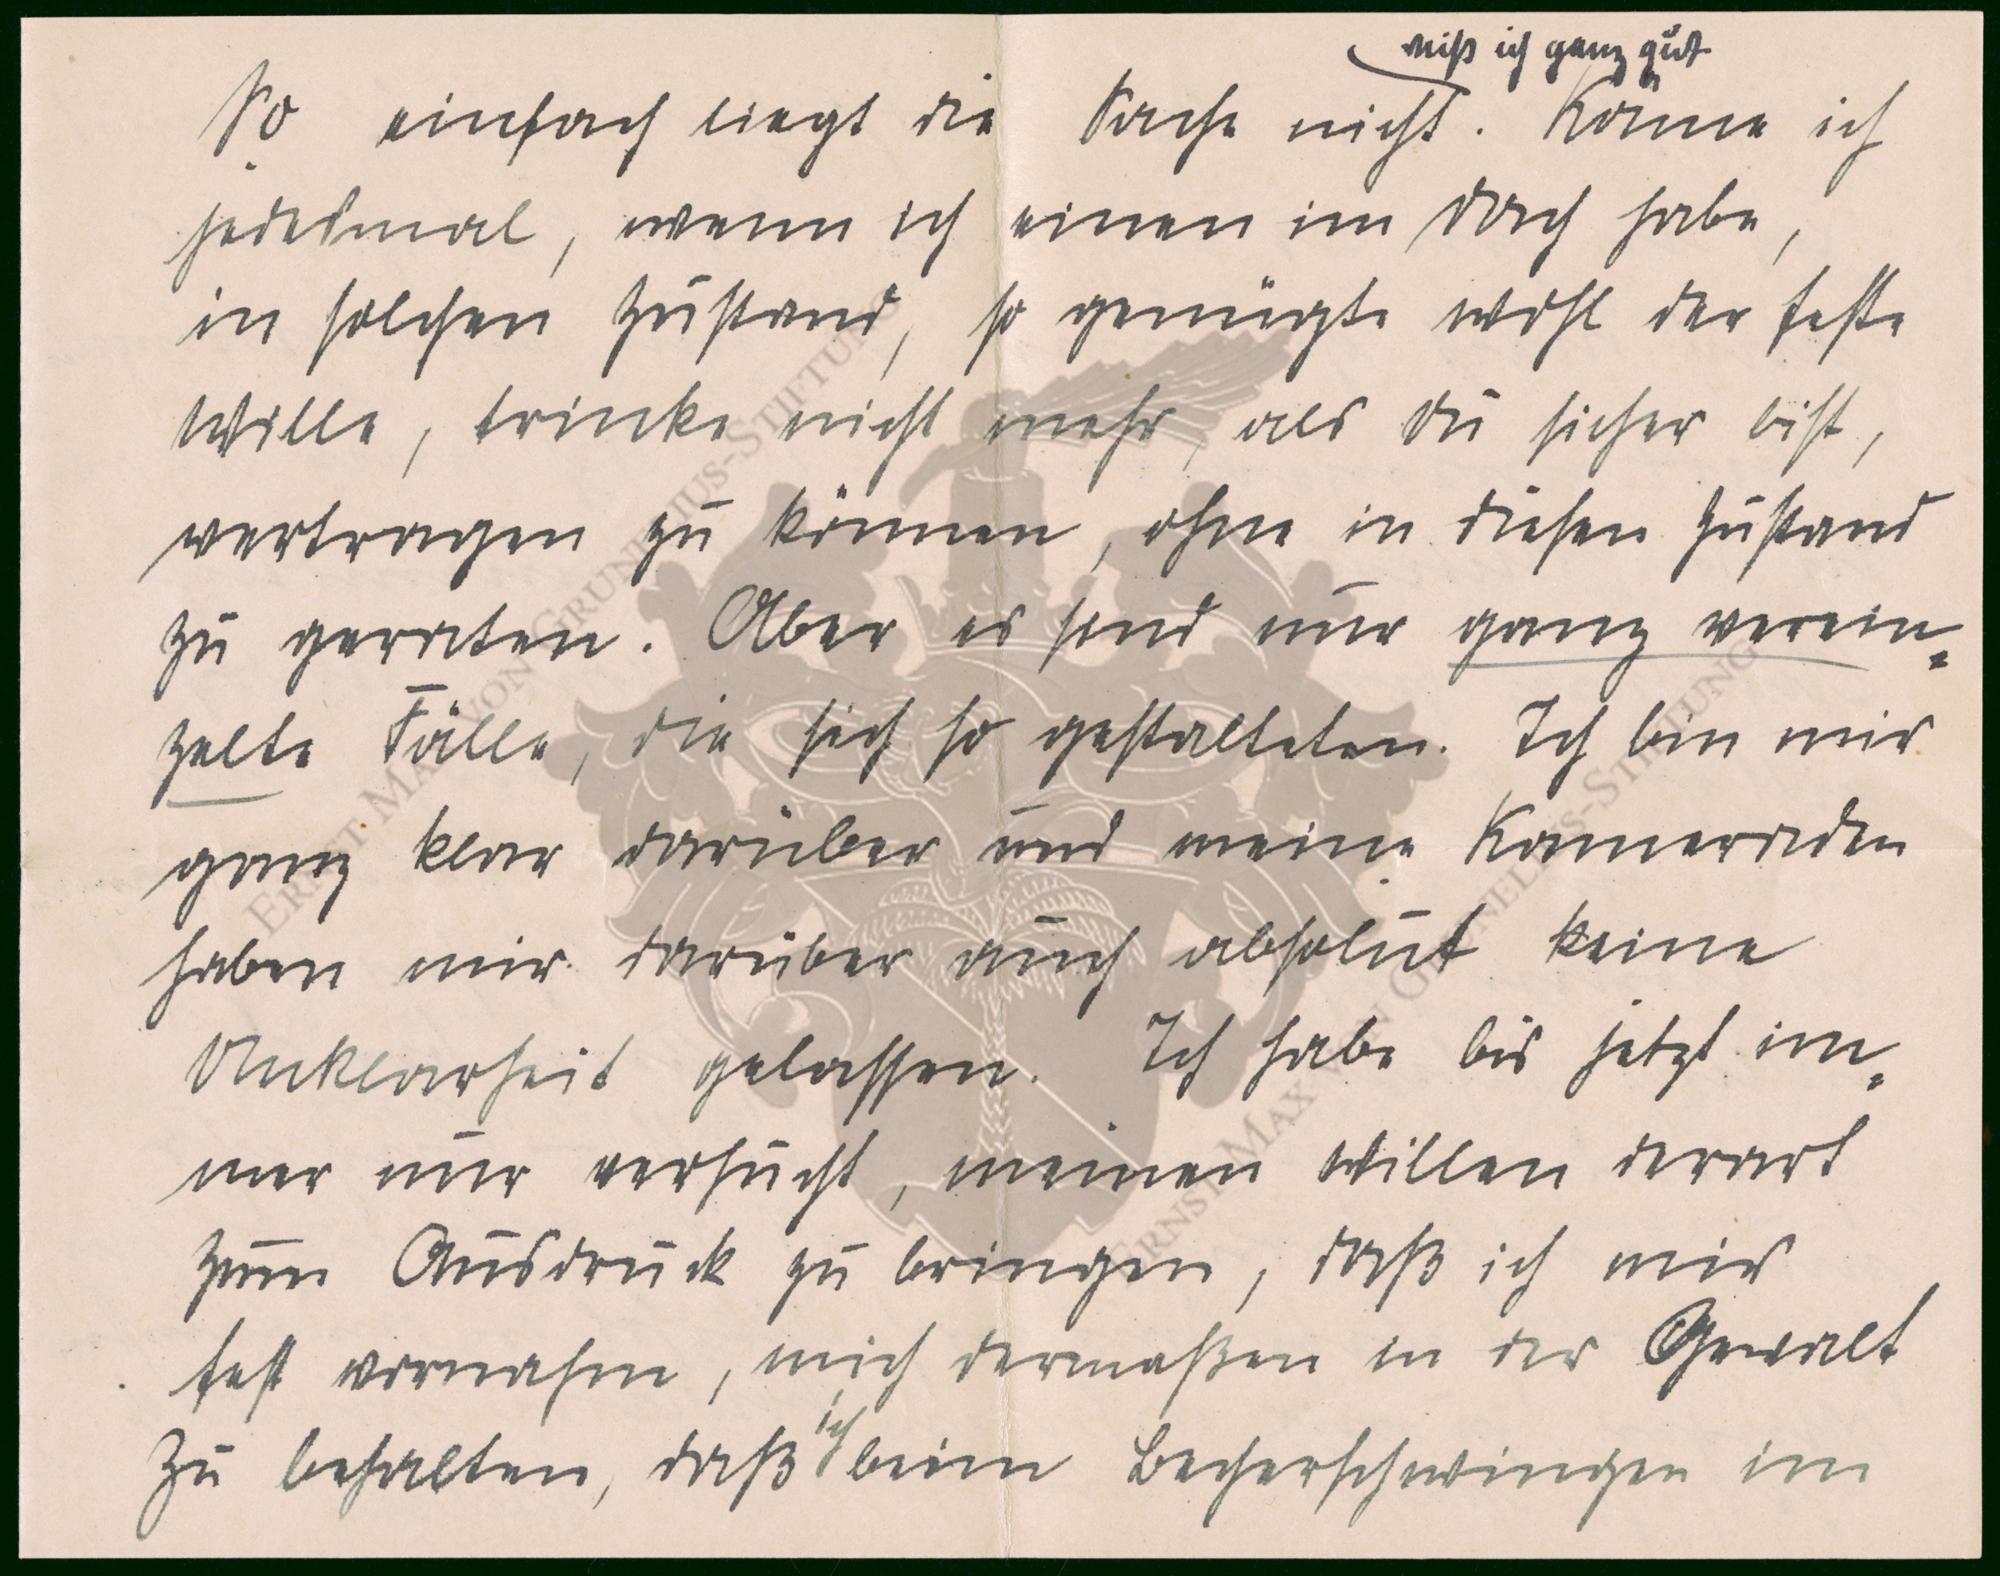 weiß ich ganz gut
So einfach liegt die Sache nicht. Käme ich
jedesmal, wenn ich einen im Dach habe,
in solchen Zustand, so genügte wohl der feste
Wille, trinke nicht mehr, als du sicher bist,
vertragen zu können, ohne in diesen Zustand
zu geraten. Aber es sind nur ganz verein-
zelte Fälle, die sich so gestalteten. Ich bin mir
ganz klar darüber und meine Kameraden
haben mir darüber auch absolut keine
Unklarheit gelassen. Ich habe bis jetzt im-
mer nur versucht, meinen Willen derart
zum Ausdruck zu bringen, daß ich mir
fest vornahm, mich dermaßen in der Gewalt
zu behalten, daß ich beim Becherschwingen im
ERNST MAX VON GRUNELIUS-STIFTUNG
ERNST MAX VON GRUNELIUS-STIFTUNG